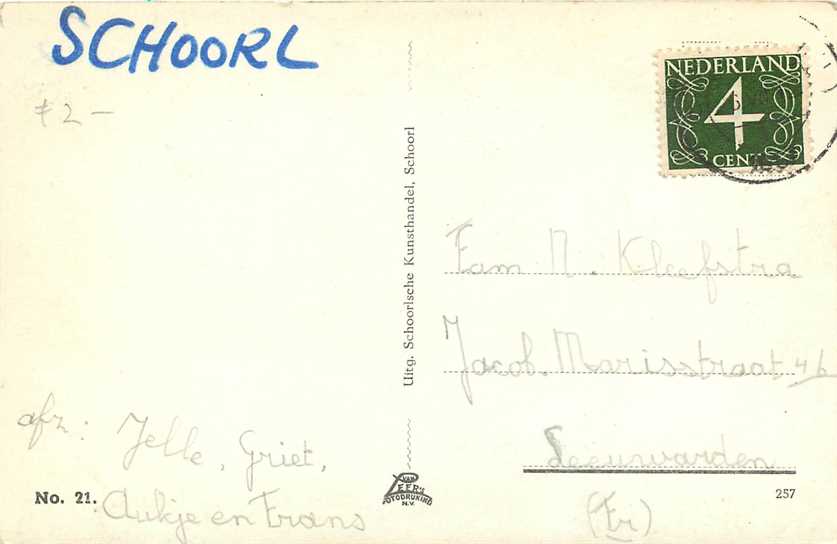 SCHOORL
ƒ 2 –
NEDERLAND
4
CENT
Uitg. Schoorlsche Kunsthandel, Schoorl
Fam N. Kleefstra
Jacob. Marisstraat 4b
Leeuwarden
(Fr)
afz: Jelle, Griet,
Aukje en Frans
No. 21.
VAN
LEER'S
FOTODRUKIND
N.V.
257